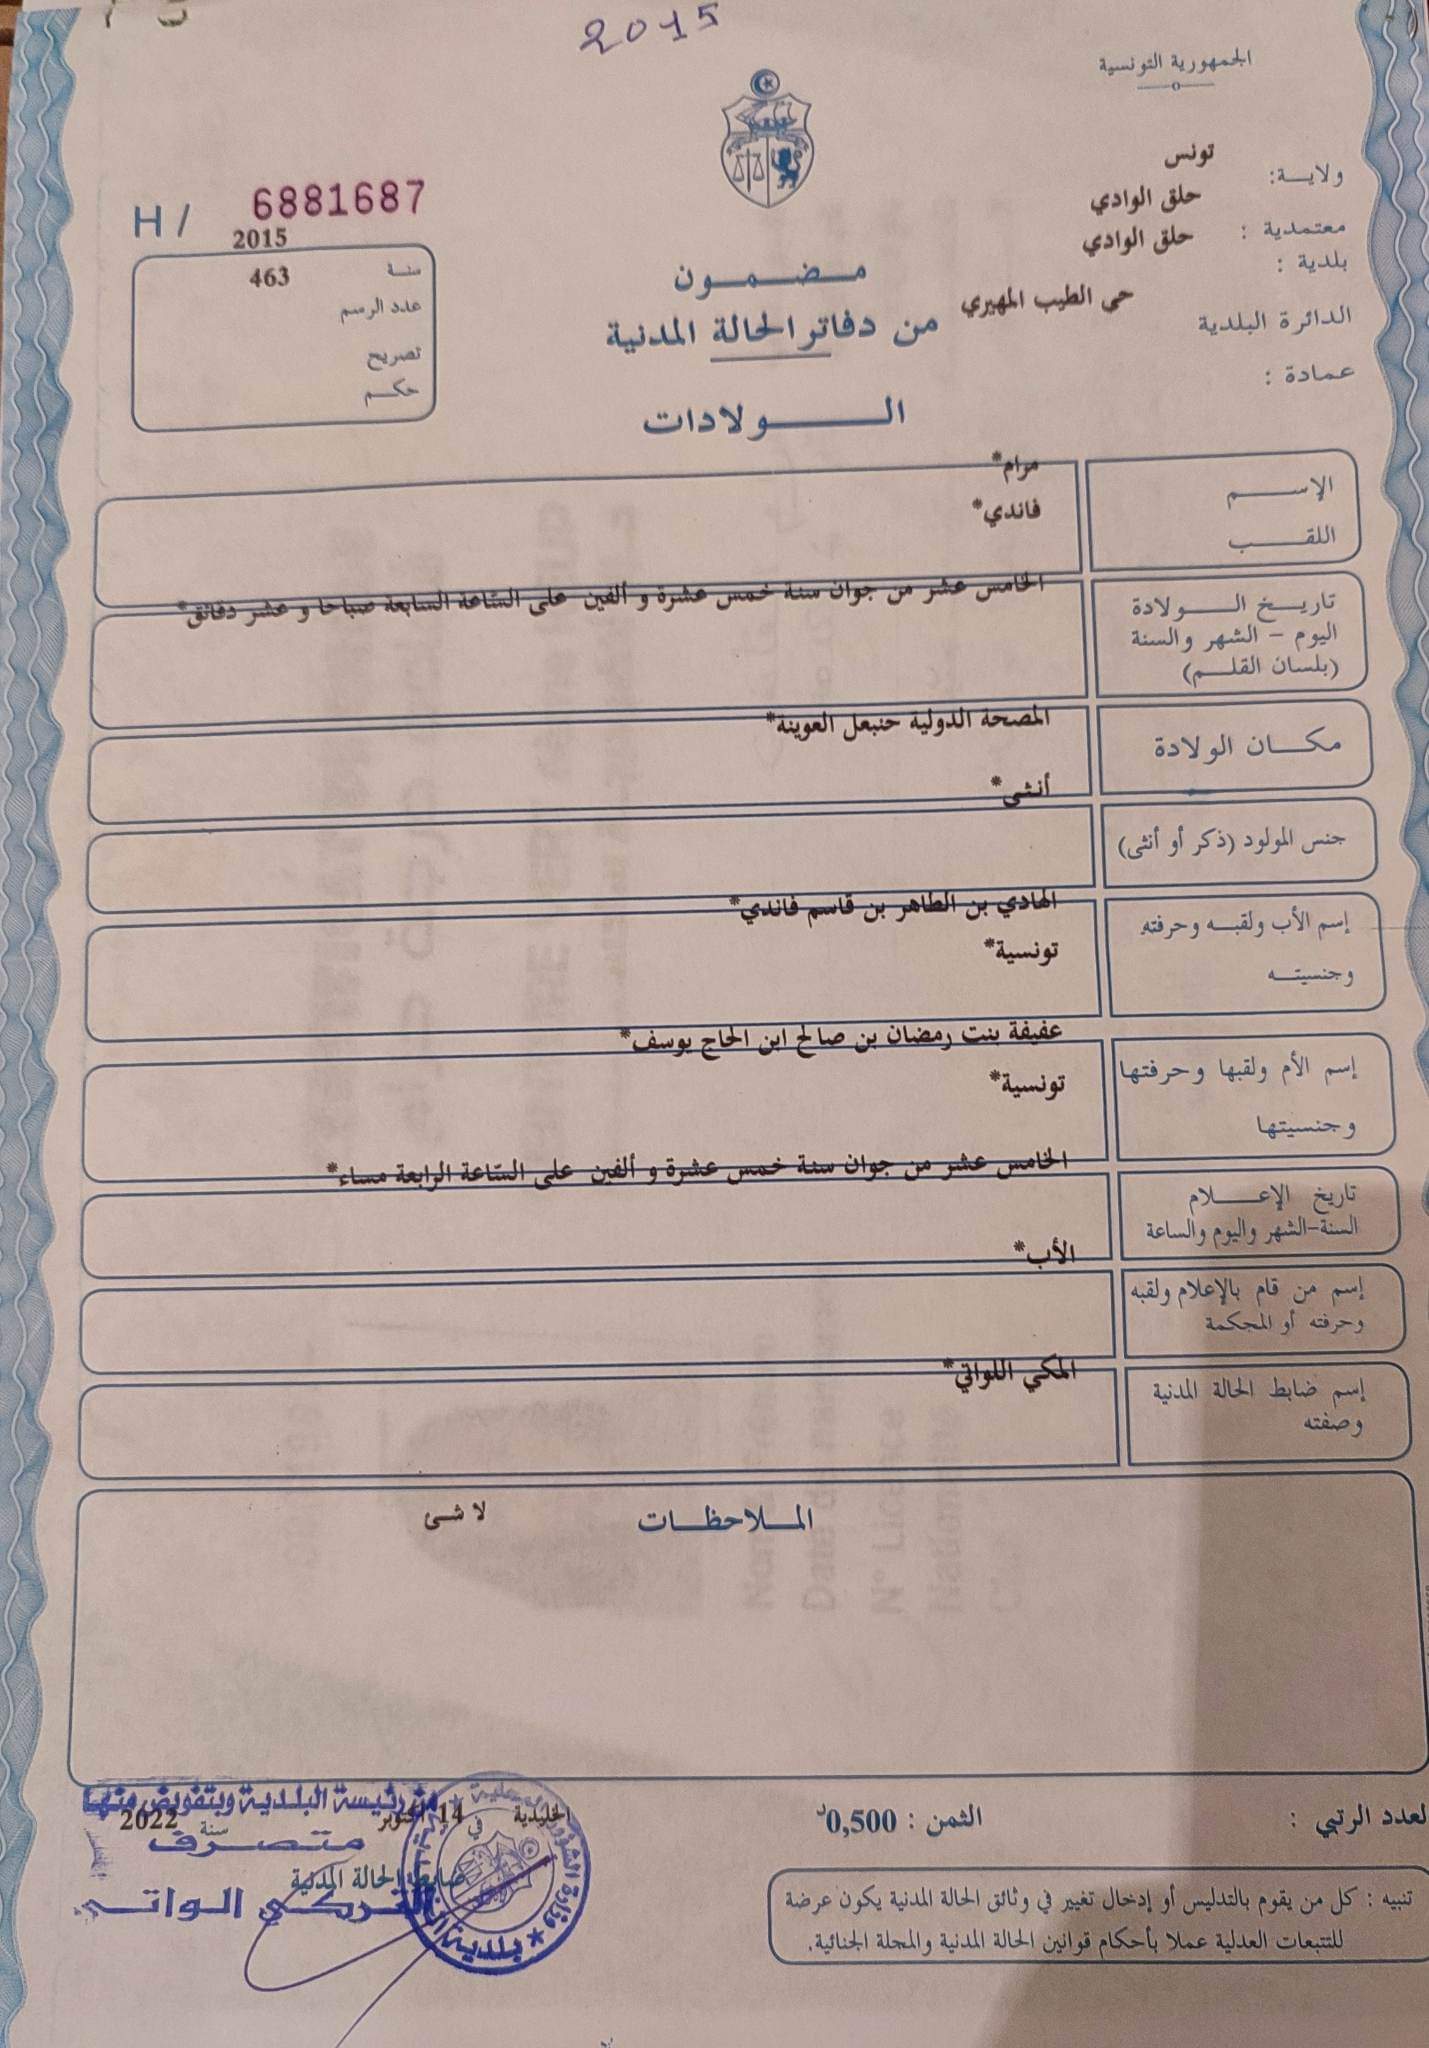 2015
الجمهورية التونسية
ولاية: تونس
معتمدية : حلق الوادي
بلدية : حلق الوادي
الدائرة البلدية حي الطيب المهيري
عمادة :
H / 6881687
سنة 2015
عدد الرسم 463
تصريح
حكم
مضمون
من دفاتر الحالة المدنية
الولادات
الإسم مرام*
اللقب فاندي*
تاريخ الولادة
اليوم - الشهر والسنة
(بلسان القلم)
الخامس عشر من جوان سنة خمس عشرة و ألفين على الساعة السابعة صباحا و عشر دقائق*
مكان الولادة
المصحة الدولية حنبعل العوينة*
جنس المولود (ذكر أو أنثى)
أنثى*
إسم الأب ولقبه وحرفته
وجنسيته
الهادي بن الطاهر بن قاسم فاندي*
تونسية*
إسم الأم ولقبها وحرفتها
وجنسيتها
عفيفة بنت رمضان بن صالح ابن الحاج يوسف*
تونسية*
تاريخ الإعلام
السنة-الشهر واليوم والساعة
الخامس عشر من جوان سنة خمس عشرة و ألفين على الساعة الرابعة مساء*
إسم من قام بالإعلام ولقبه
وحرفته أو المحكمة
الأب*
إسم ضابط الحالة المدنية
وصفته
المكي اللواتي*
الملاحظات
لا شئ
العدد الرتبي :
الثمن : 0,500د
الخليدية في 14 أكتوبر سنة 2022
عن رئيسة البلدية وبتفويض منها
متصرف
ضابط الحالة المدنية
التركي الواتي
تنبيه : كل من يقوم بالتدليس أو إدخال تغيير في وثائق الحالة المدنية يكون عرضة
للتتبعات العدلية عملا بأحكام قوانين الحالة المدنية والمجلة الجنائية.